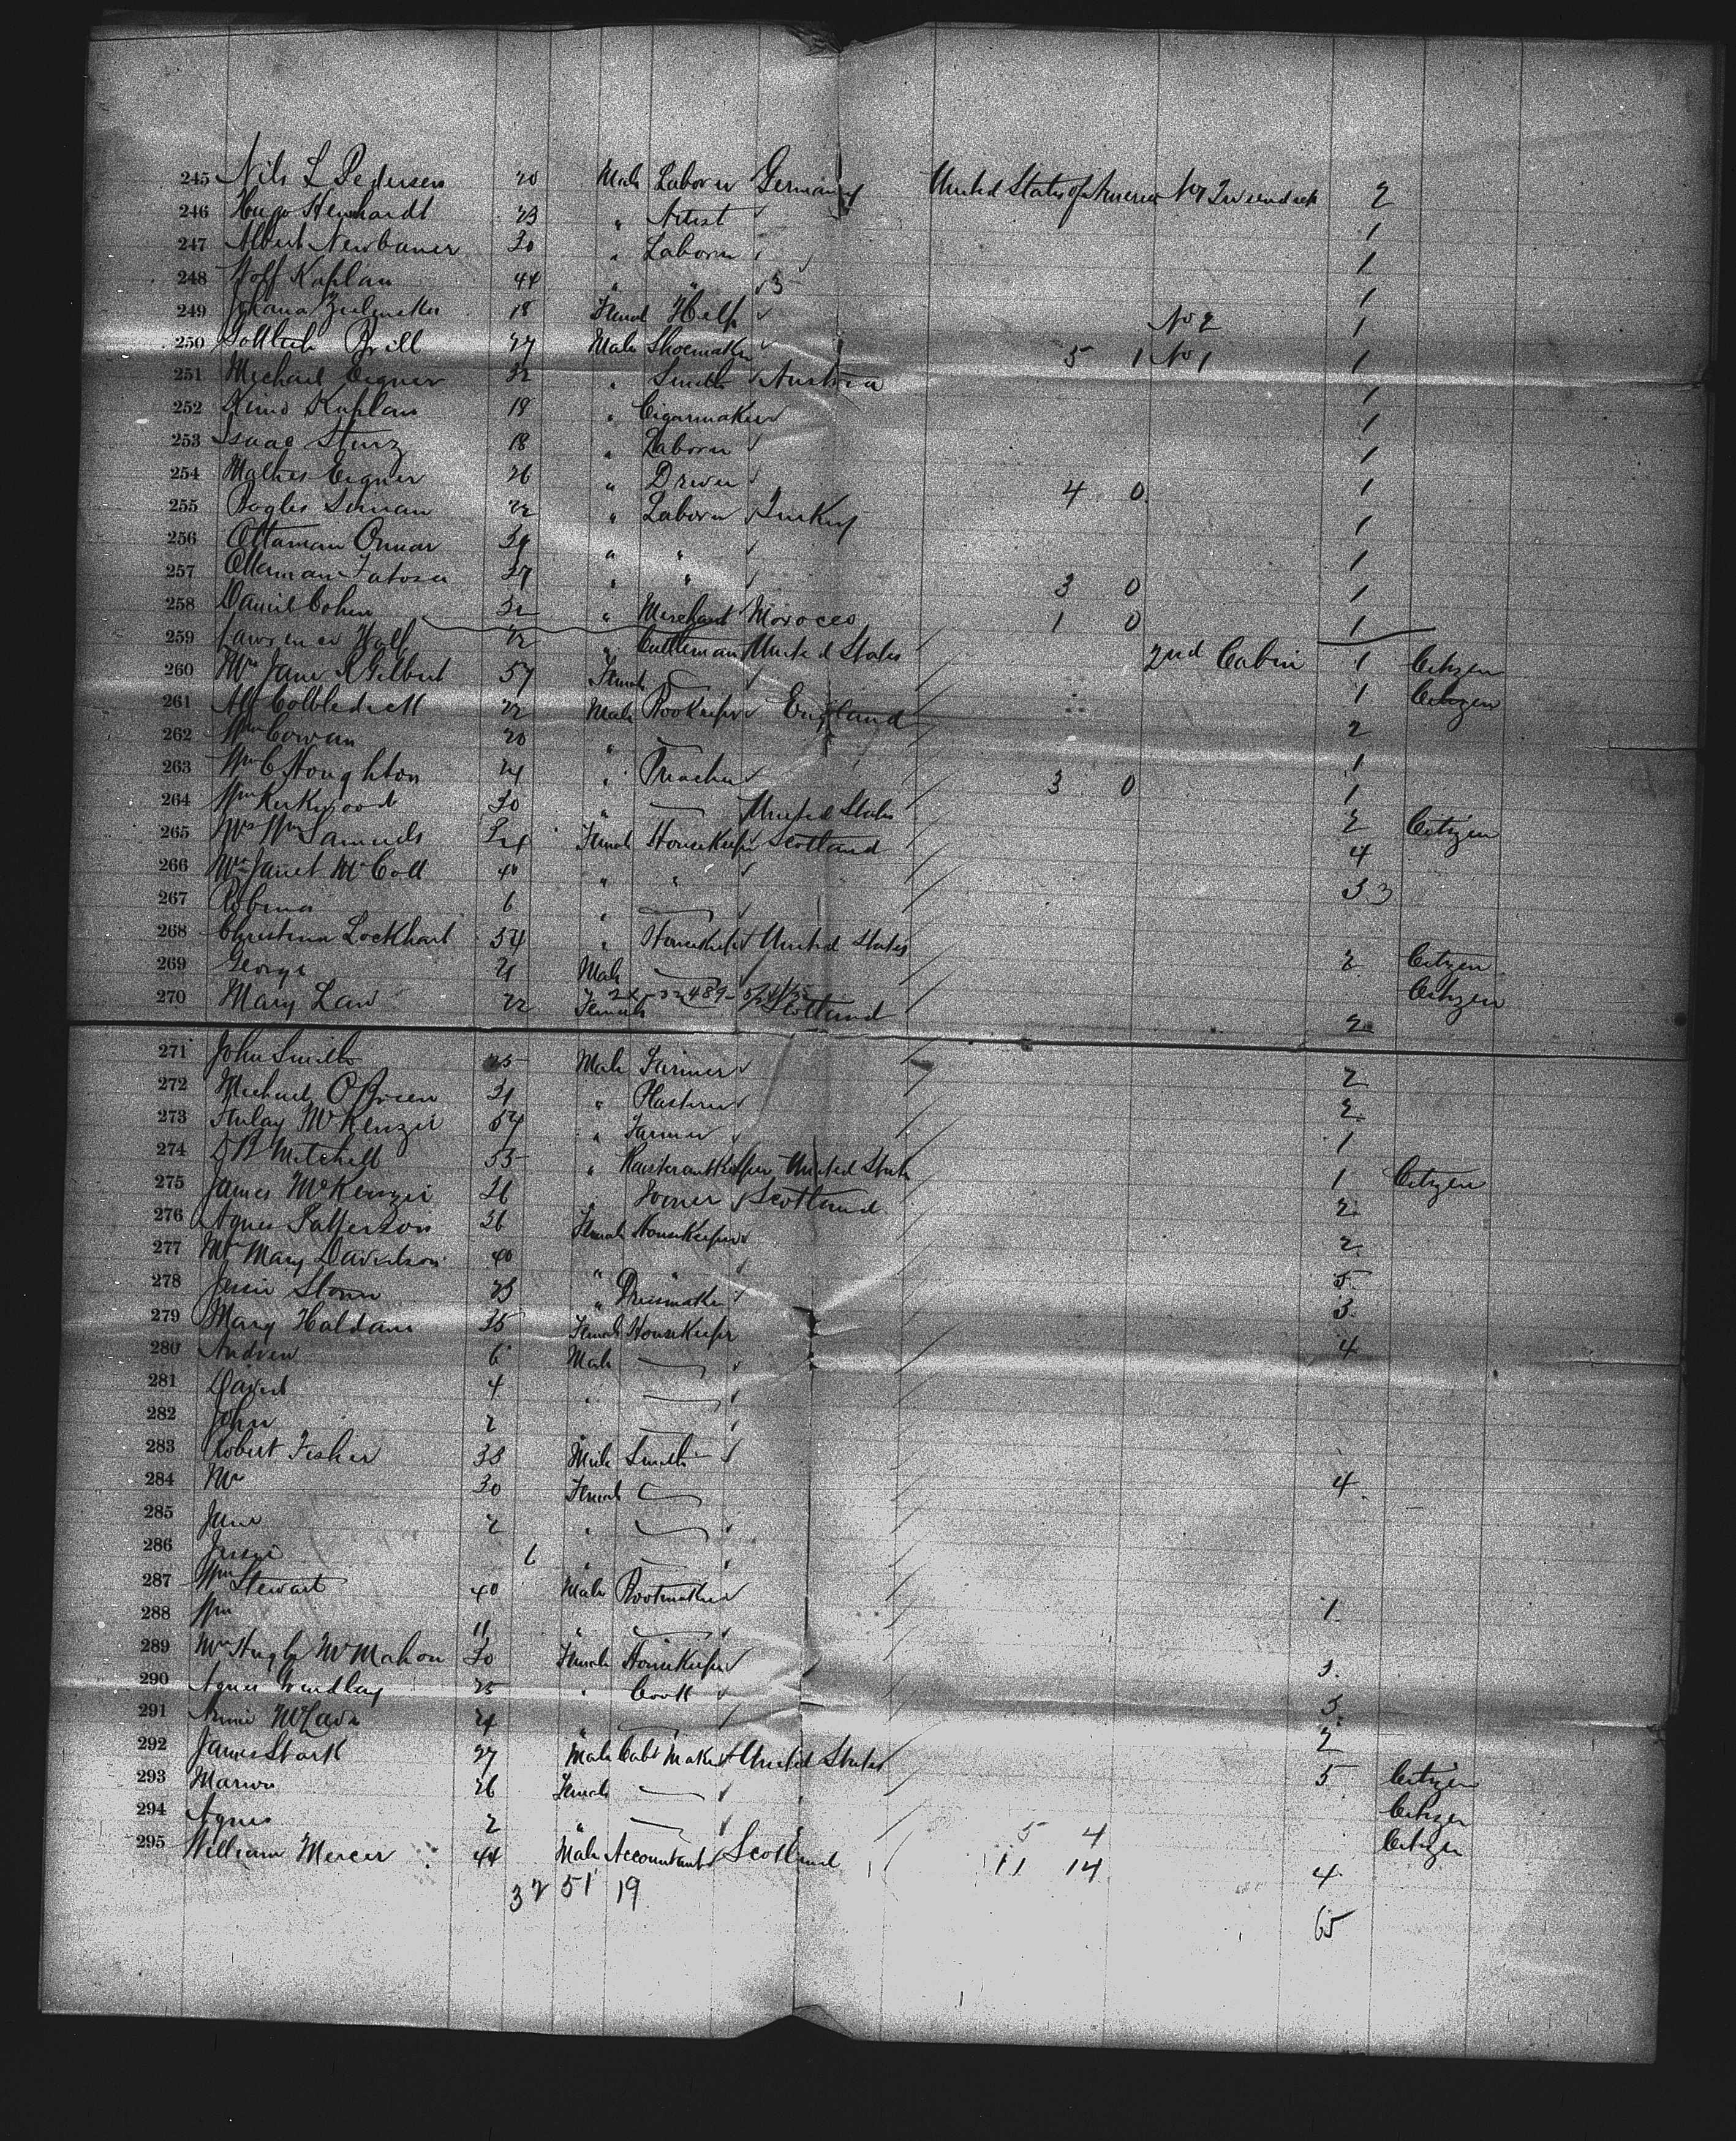 245 Nils L Pedersen 20 Male Laborer Germany United States of America No 1 2
246 Hugo 23 " Artist ✓ 1
247 Albert Newbauer 30 " Laborer ✓ 1
248 Wolf Kaplan 44 " " ✓ 1
249 18 Female Help ✓ No 2 1
250 Gottlieb Brill 27 Male Shoemaker ✓ 5 1 No 1 1
251 Michael Eigner 32 " Smith ✓ Austria 1
252 Kaplan 18 " Cigarmaker ✓ 1
253 Isaac Sturz 18 " Laborer ✓ 1
254 Mathes Eigner 26 " Driver ✓ 4 0 1
255 22 " Laborer ✓ Turkey 1
256 Ottaman Omar " " ✓ 1
257 Ottaman 37 " " ✓ 3 0 1
258 Daniel Cohen 32 " Merchant Morocco 1 0 1
259 Lawrence Wolf 22 " Cattleman United States 2nd Cabin 1 Citizen
260 Mrs Jane R Gilbert 57 Female ✓ 1 Citizen
261 Alf 22 Male Bookkeeper ✓ England 2
262 Wm Cowan 20 " 1
263 Wm C Houghton 24 " Preacher ✓ 3 0 1
264 Wm Kirkwood 30 " United States 2 Citizen
265 Mrs Wm Samuels 34 Female Housekeeper Scotland 4
266 Mrs Janet McColl 40 " " ✓ 3 3
267 Robina 6 " ✓
268 Christina Lockhart 54 " Housekeeper ✓ United States 2 Citizen
269 George 21 Male ✓ Citizen
270 Mary Law 22 Female Scotland 2
271 John Smith 25 Male Farmer ✓ 2
272 Michael O Brien 31 " Plasterer ✓ 2
273 Finlay McKenzie 54 " Farmer ✓ 1
274 D B Mitchell 55 " United States 1 Citizen
275 James McKenzie 36 " Joiner ✓ Scotland 2
276 Agnes Patterson 36 Female Housekeeper ✓ 2
277 Mrs Mary Davidson 40 " " ✓ 5
278 Jessie Storm 23 " Dressmaker ✓ 3
279 Mary Haldane 35 Female Housekeeper 4
280 Andrew 6 Male ✓
281 David 4 " ✓
282 John 2 " ✓
283 Robert Fisher 33 Male Smith ✓
284 Mrs 30 Female 4
285 Jane 2 " ✓
286 Jessie 6 " ✓
287 Wm Stewart 40 Male Bootmaker ✓ 1
288 Wm 11 " ✓
289 Mrs Hugh McMahon 30 Female Housekeeper ✓ 3
290 Agnes Findlay 25 " Cook ✓ 3
291 Annie 24 " ✓ 2
292 James Stark 27 Male Cabt Maker United States 5 Citizen
293 Marion 26 Female ✓ Citizen
294 Agnes 2 " ✓ 5 4 Citizen
295 William Mercer 44 Male Accountant ✓ Scotland 11 14 4
32 51 19 65